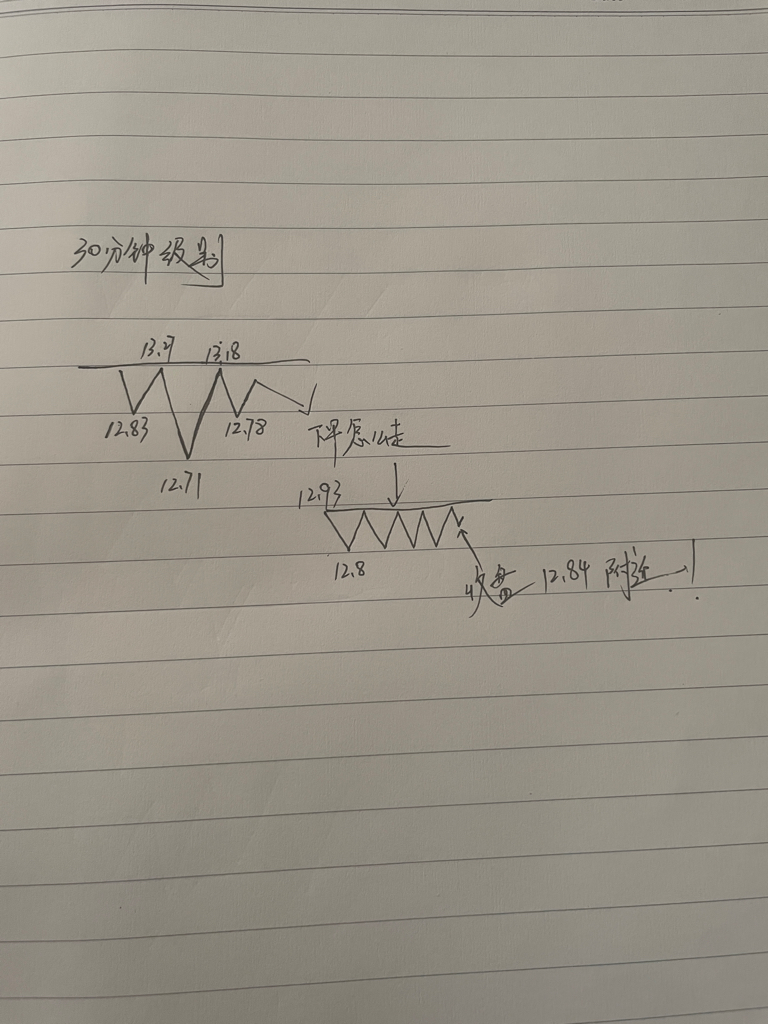 30分钟级别
13.27 13.18
12.83 12.78
12.71
下午怎么走
12.93
12.8
收盘 12.84 附近!